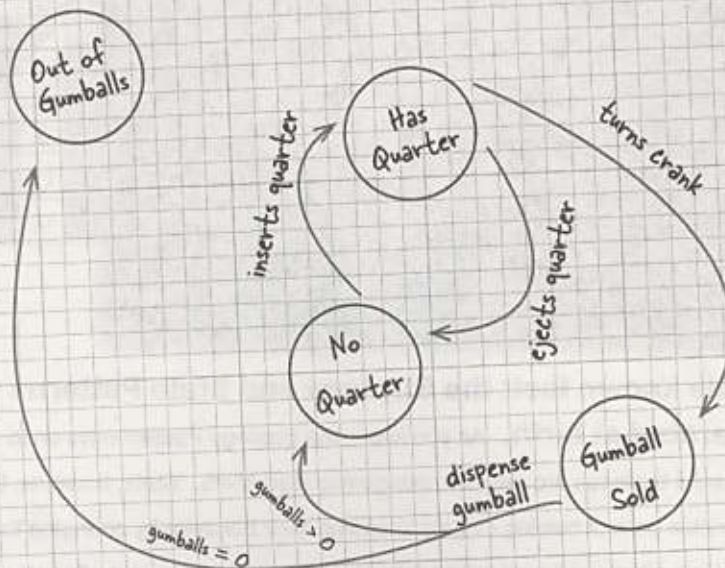 Out of
Gumballs
Has
Quarter
turns crank
inserts quarter
ejects quarter
No
Quarter
Gumball
Sold
dispense
gumball
gumballs > 0
gumballs = 0